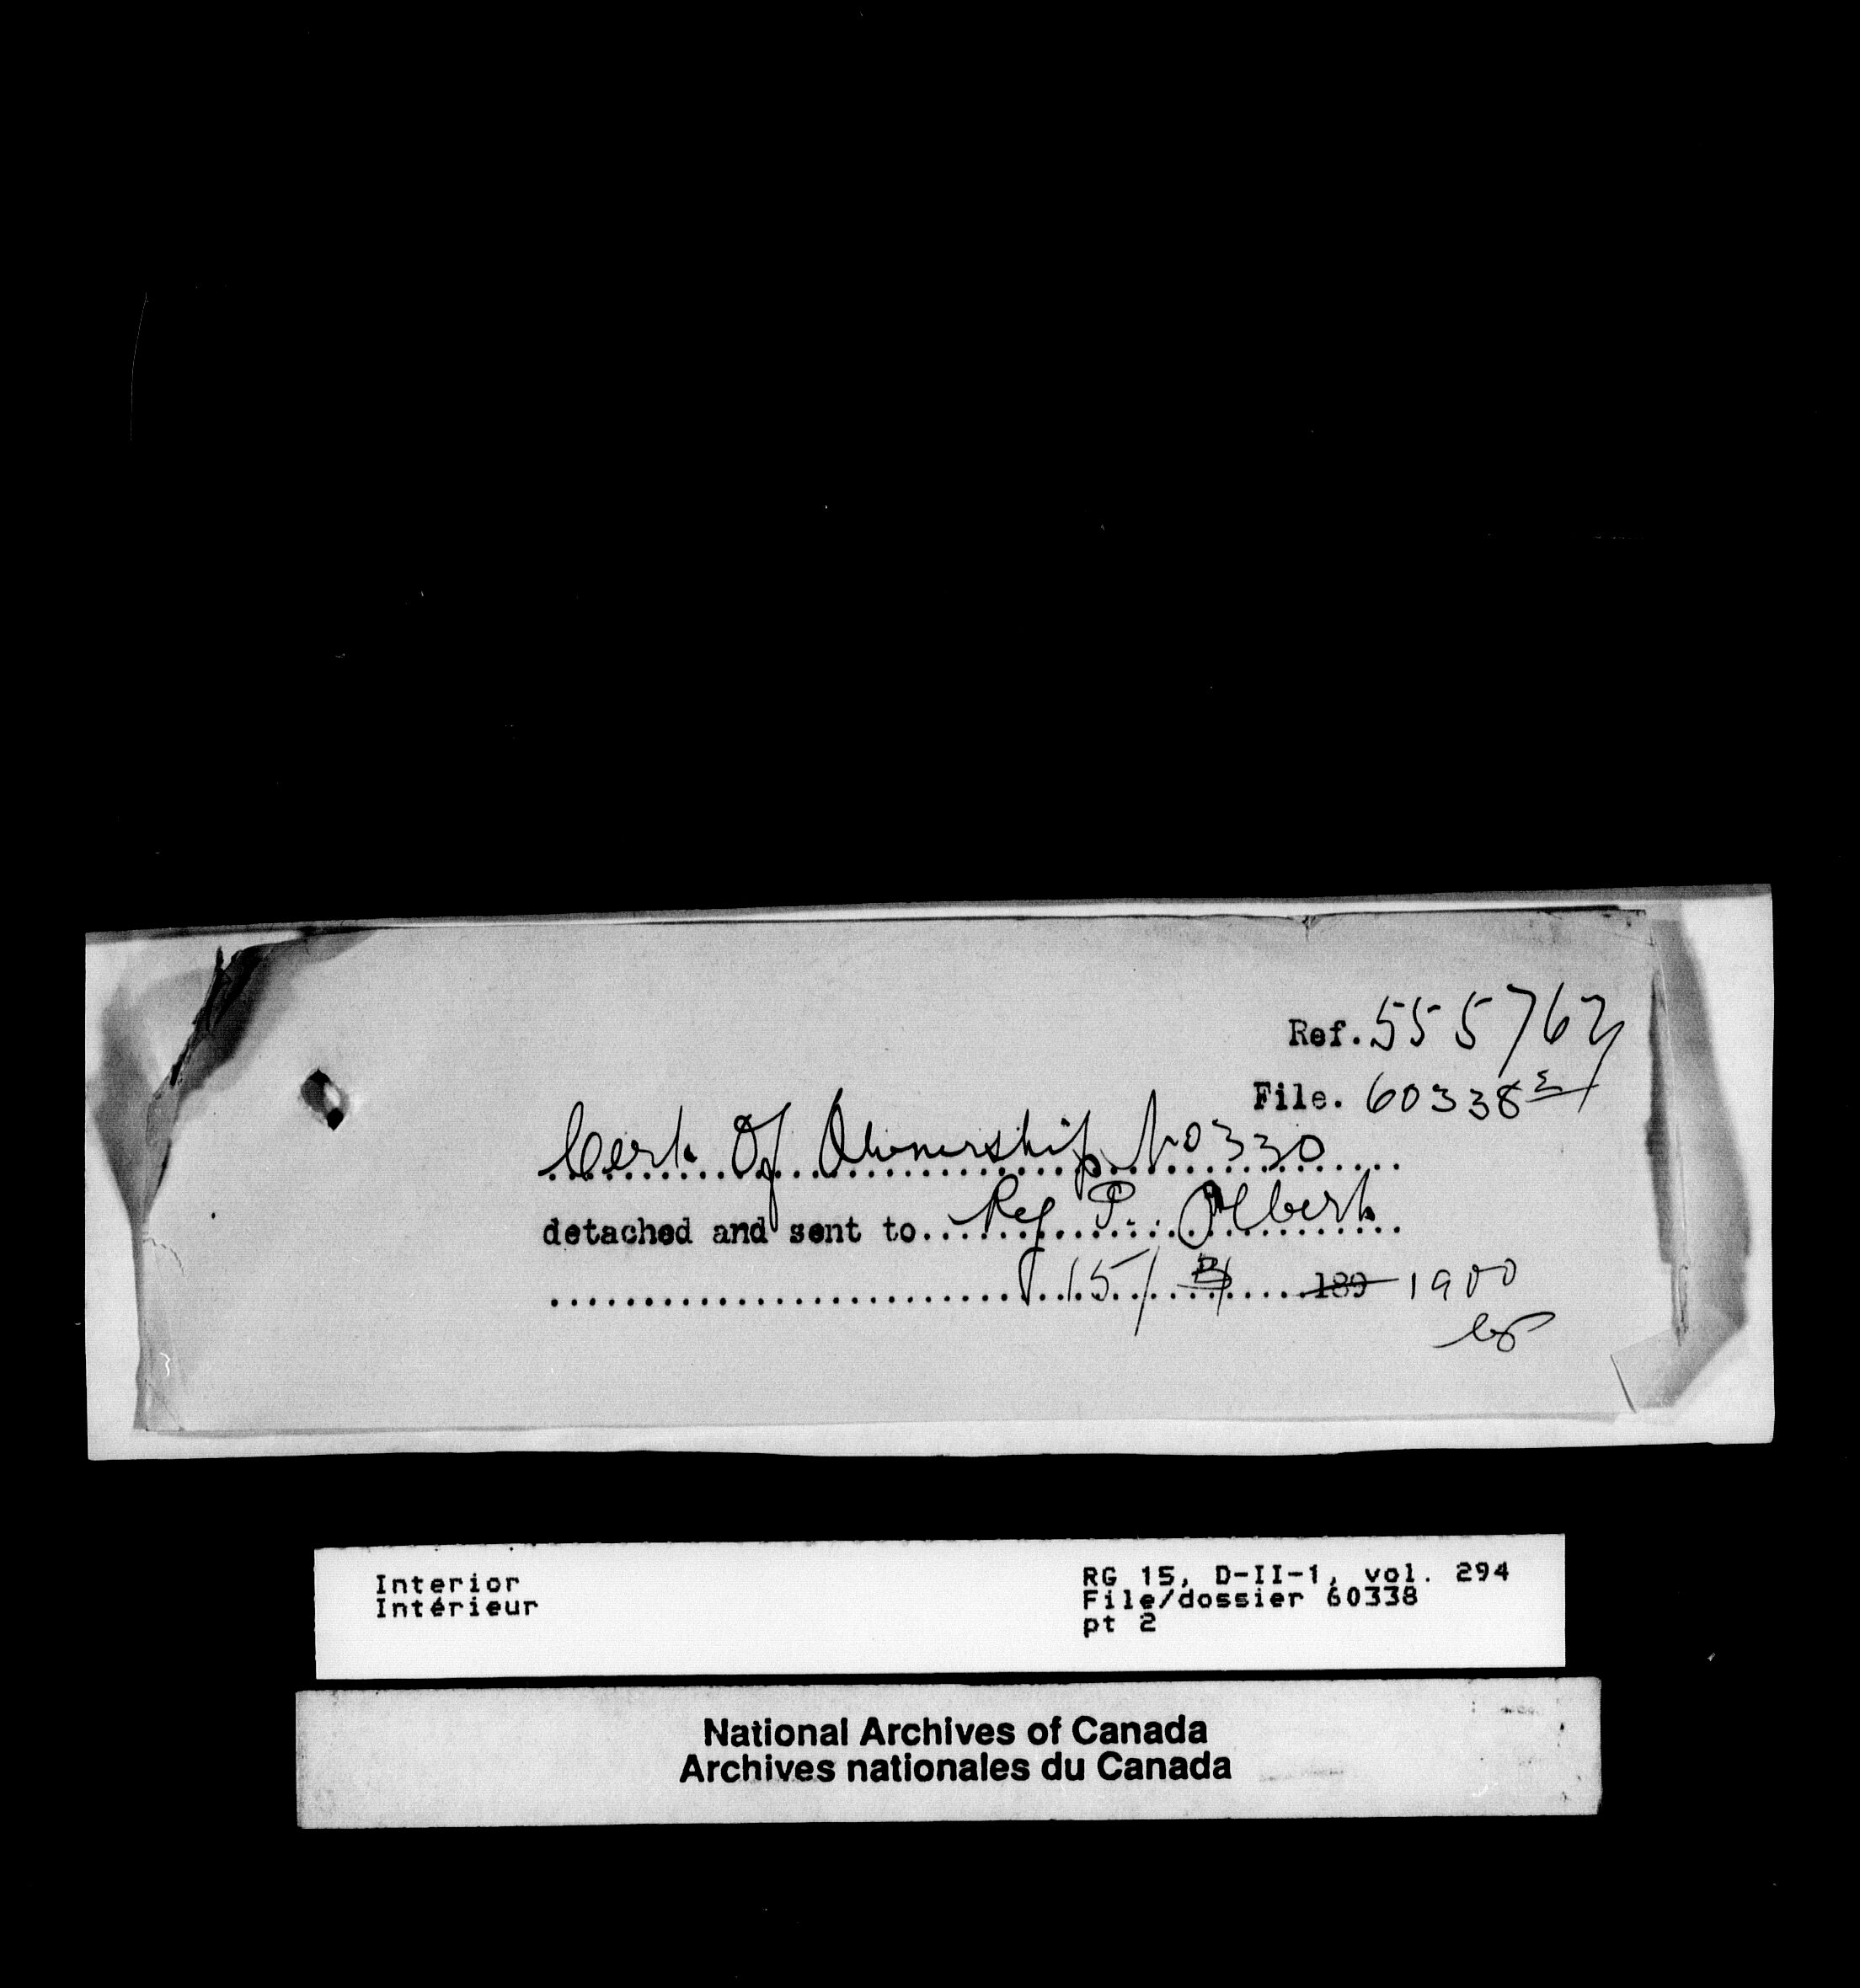 Ref. 555762
File. 60338
Cert. Of Ownership No 330
detached and sent to Reg P. Albert
15/ 189 1900
Interior
Intérieur
RG 15, D-II-1, vol. 294
File/dossier 60338
pt 2
National Archives of Canada
Archives nationales du Canada